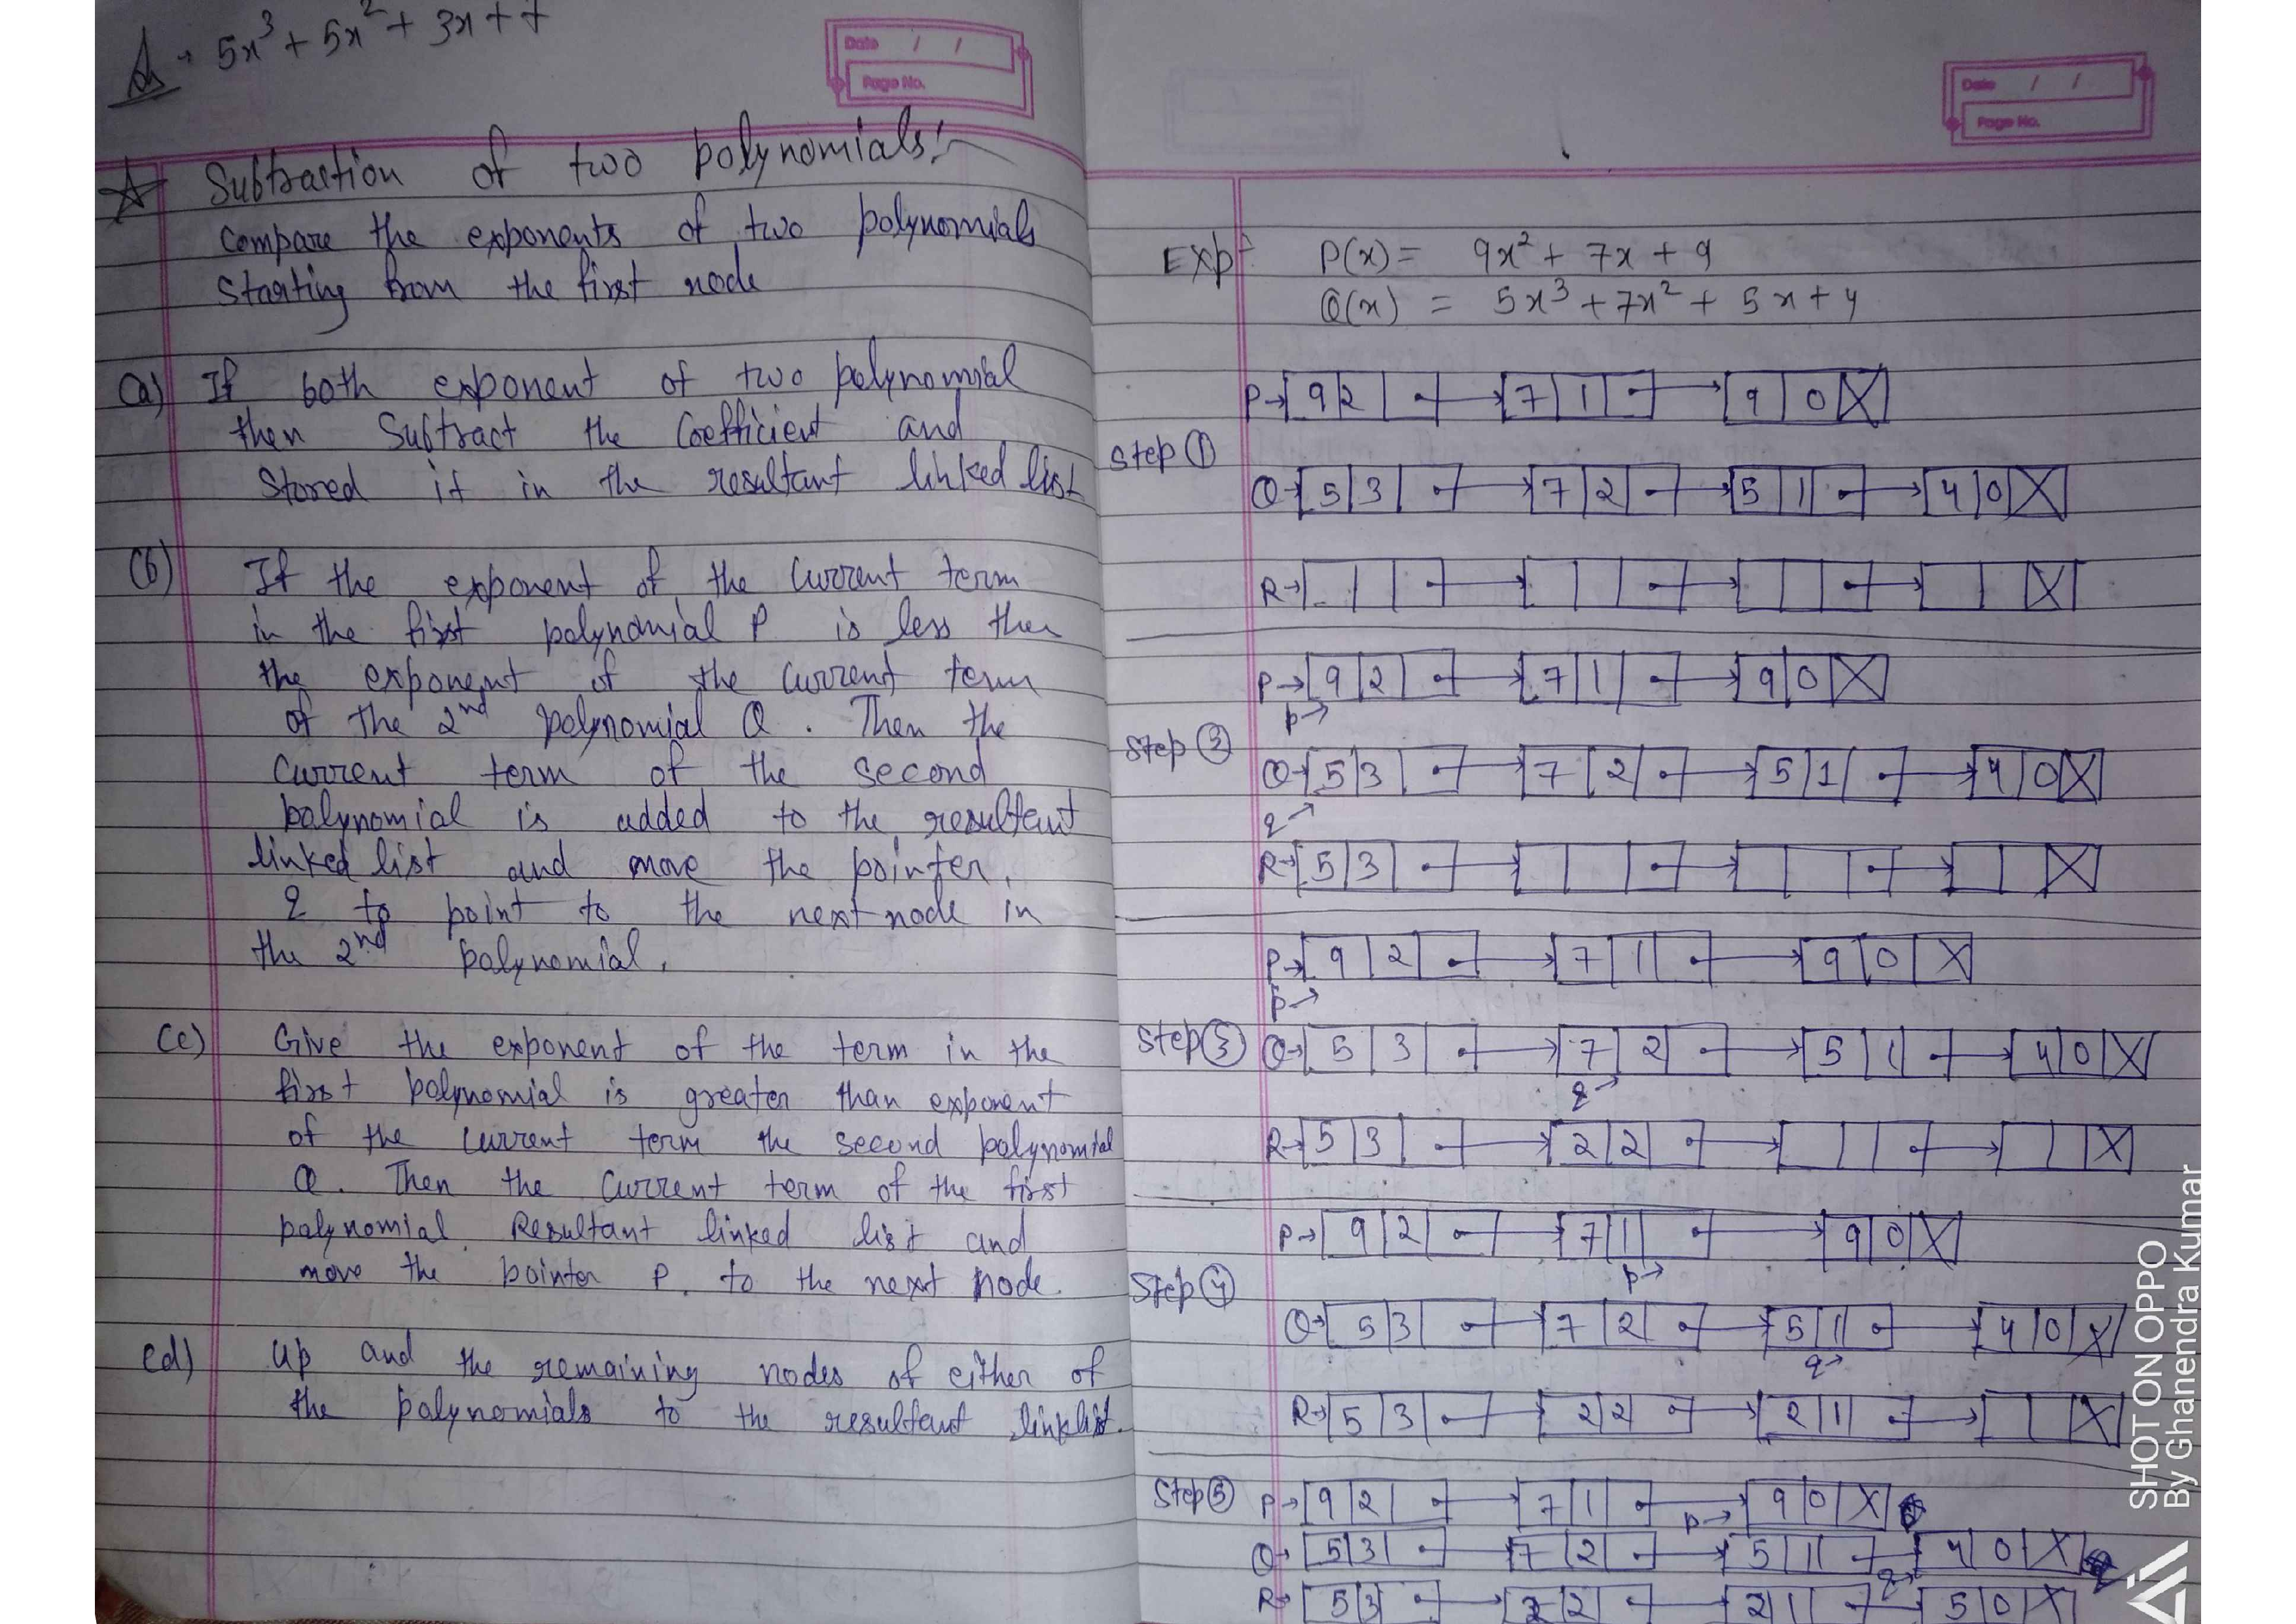 Ans → 5x³ + 5x² + 3x + 7
Date / /
Page No.
Subtraction of two polynomials:
Compare the exponents of two polynomials
Starting from the first node
(a) If both exponent of two polynomial
then Subtract the Coefficient and
Stored it in the resultant linked list
(b) If the exponent of the Current term
in the first polynomial P is less then
the exponent of the Current term
of the 2nd polynomial Q. Then the
Current term of the second
polynomial is added to the resultant
linked list and move the pointer,
q to point to the next node in
the 2nd polynomial.
(c) Give the exponent of the term in the
first polynomial is greater than exponent
of the current term the second polynomial
Q. Then the Current term of the first
polynomial. Resultant linked list and
move the pointer P. to the next node.
(d) Up and the remaining nodes of either of
the polynomials to the resultant linklist.
Date / /
Page No.
Exp:- P(x) = 9x² + 7x + 9
Q(x) = 5x³ + 7x² + 5x + 4
P→ 9 2 → 7 1 → 9 0 X
Step ①
Q→ 5 3 → 7 2 → 5 1 → 4 0 X
R→ → → → X
P→ 9 2 → 7 1 → 9 0 X
p→
Step ②
Q→ 5 3 → 7 2 → 5 1 → 4 0 X
q→
R→ 5 3 → → → X
P→ 9 2 → 7 1 → 9 0 X
p→
Step ③ Q→ 5 3 → 7 2 → 5 1 → 4 0 X
q→
R→ 5 3 → 2 2 → → X
P→ 9 2 → 7 1 → 9 0 X
p→
Step ④
Q→ 5 3 → 7 2 → 5 1 → 4 0 X
q→
R→ 5 3 → 2 2 → 2 1 → X
Step ⑤ P→ 9 2 → 7 1 → 9 0 X
p→
Q→ 5 3 → 7 2 → 5 1 → 4 0 X
q→
R→ 5 3 → 2 2 → 2 1 → 5 0 X
SHOT ON OPPO
By Ghanendra Kumar